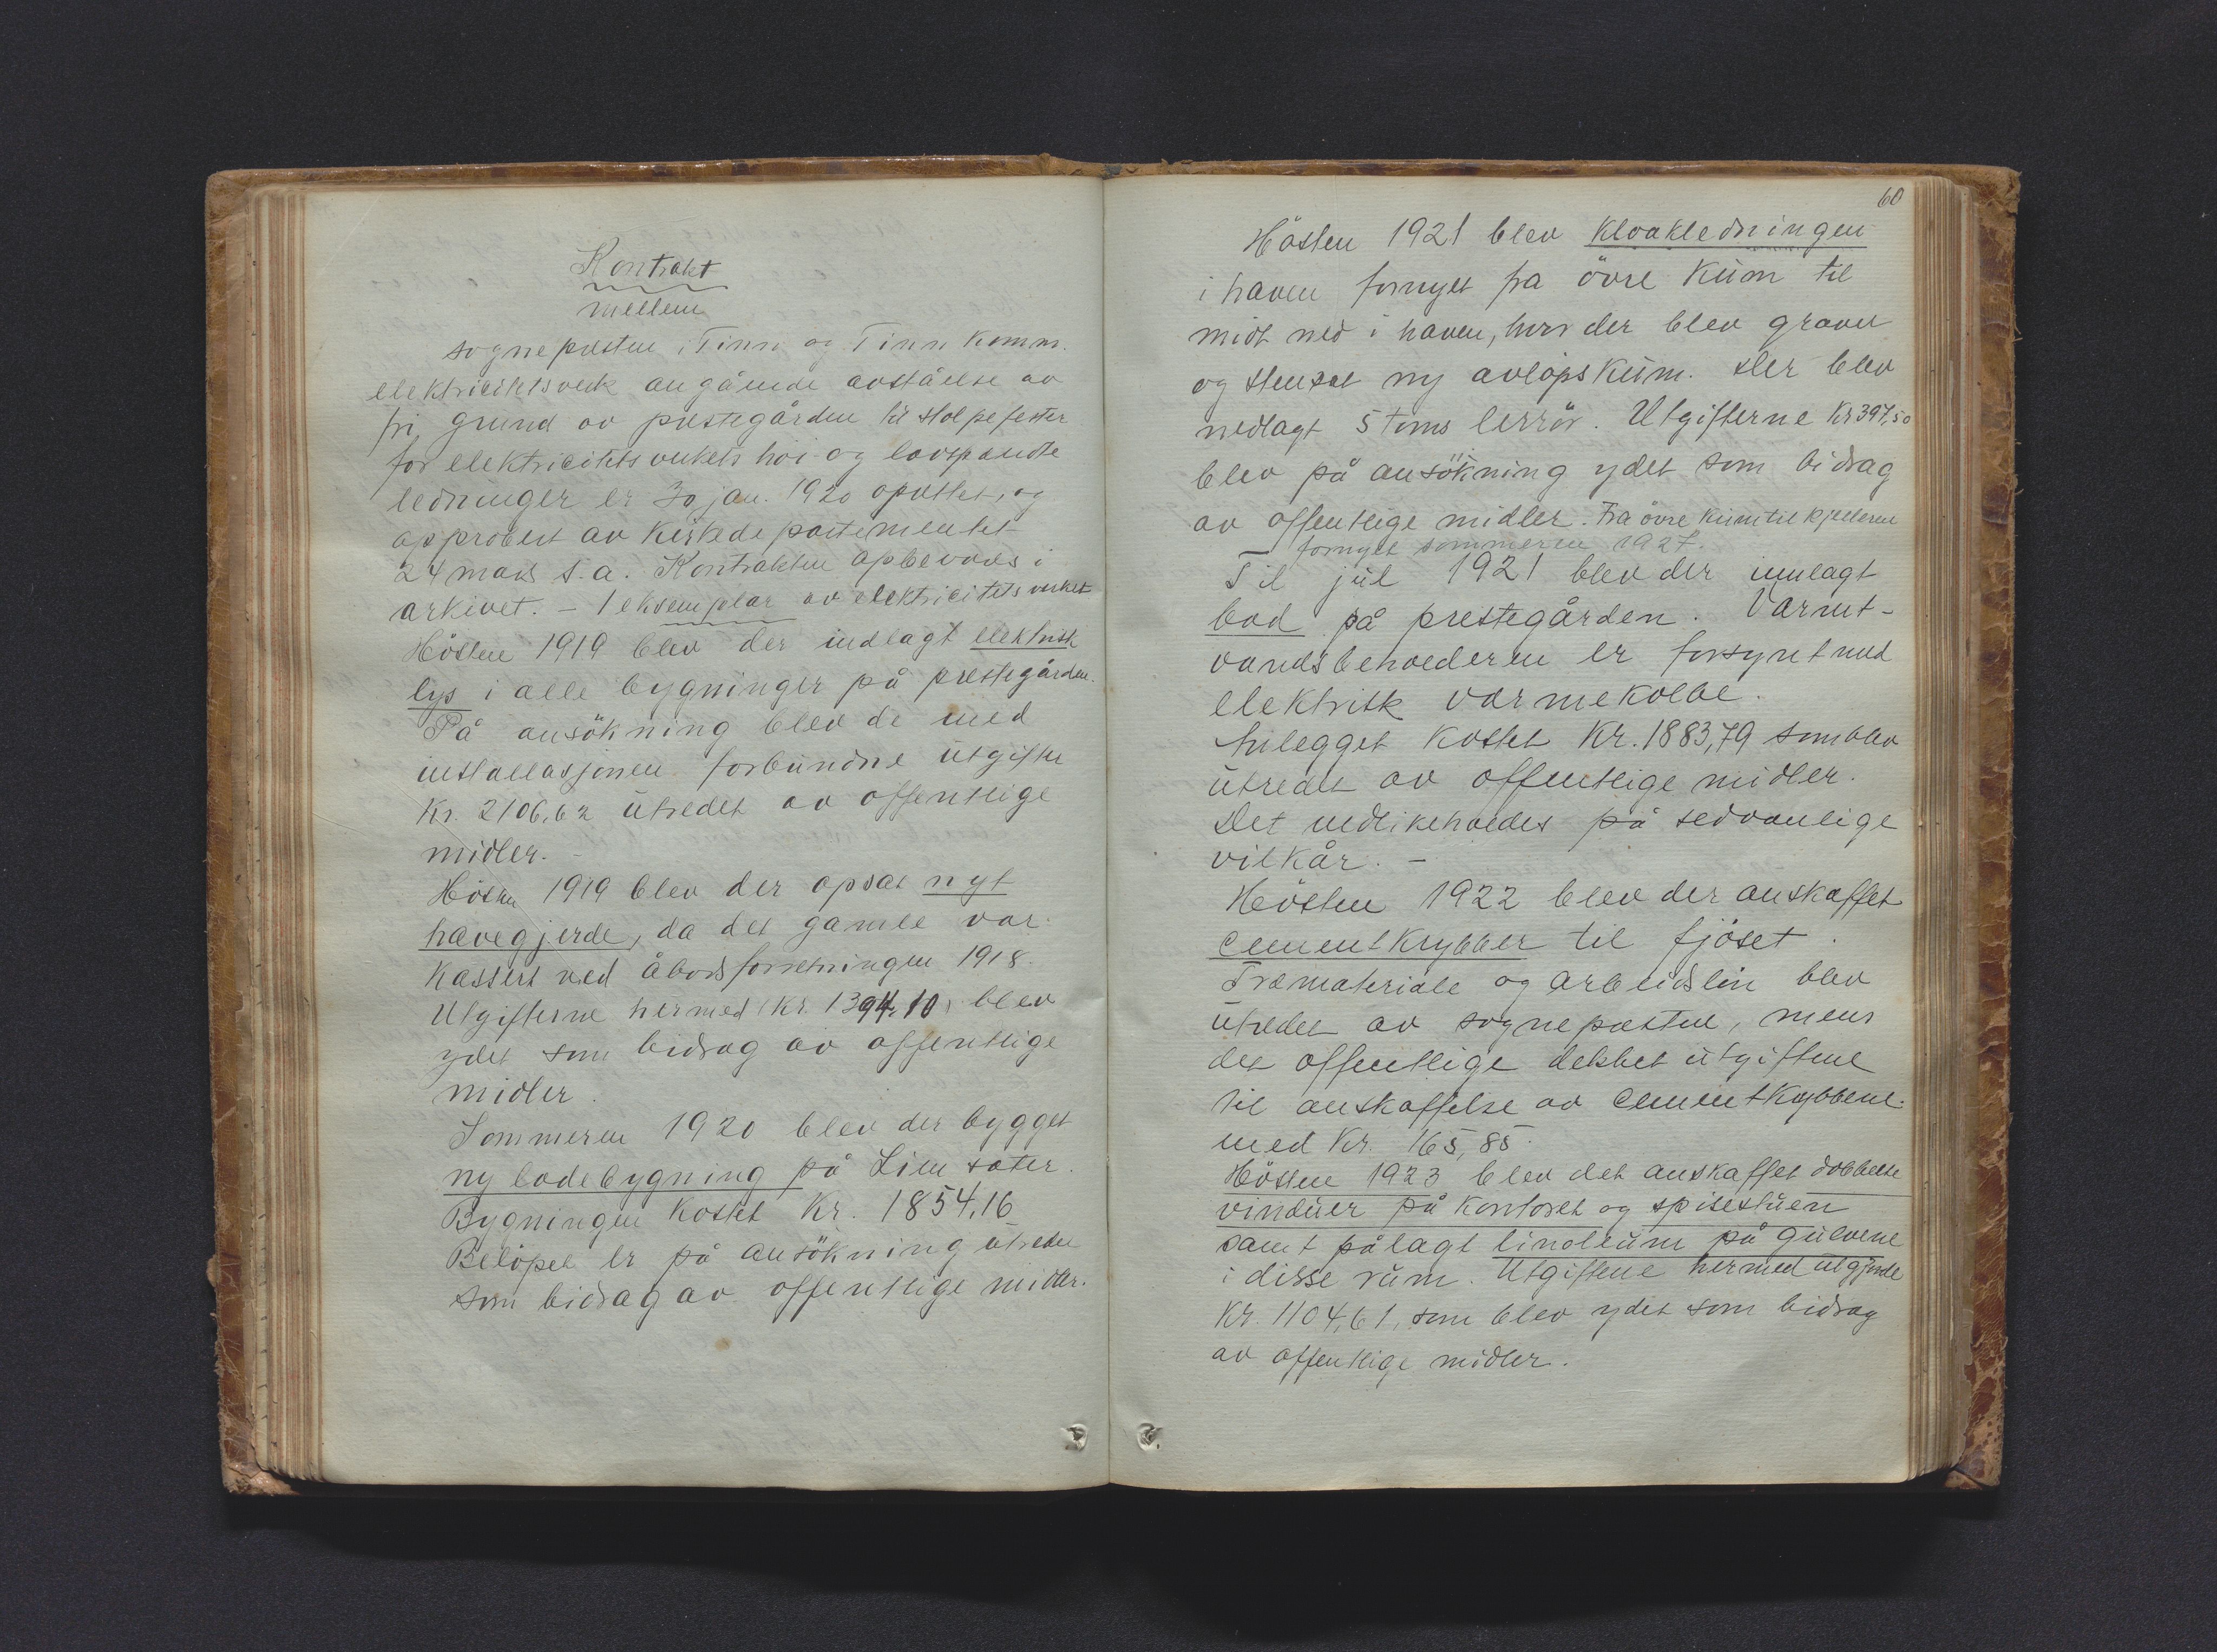 Kontrakt
mellem
sognepresten i Tinn og Tinn komm.
elektricitetsverk angående avståelse av
fri grund av prestegården til stolpefester
for elektricitetsverkets høi- og lavspændte
ledninger er 30 jan. 1920 oprettet, og
approbert av Kirkedepartementet
24 mars s.a. Kontrakten opbevares i
arkivet. – 1 eksemplar av elektricitetsverket
Hösten 1919 blev der indlagt elektrisk
lys i alle bygninger på prestegården.
På ansökning blev de med
installasjonen forbundne utgifter
Kr. 2106,62 utredet av offentlige
midler. –
Hösten 1919 blev der opsat nyt
havegjerde, da det gamle var
kassert ved åbodsforretningen 1918.
Utgifterne hermed (kr. 1394,10) blev
ydet som bidrag av offentlige
midler.
Sommeren 1920 blev der bygget
ny ladebygning på Lien sæter.
Bygningen kostet Kr. 1854,16
Belöpet er på ansökning utredet
som bidrag av offentlige midler.
60
Hösten 1921 blev kloakledningen
i haven fornyet fra övre kum til
midt ned i haven, hvor der blev gravet
og stensat ny avlöpskum. Der blev
nedlagt 5 toms lerrör. Utgifterne kr 397,50
blev på ansökning ydet som bidrag
av offentlige midler. Fra övre kum til kjelleren
fornyet sommeren 1927.
Til jul 1921 blev der innlagt
bad på prestegården. Varmt-
vandsbeholderen er forsynt med
elektrisk varmekolbe.
Anlegget kostet Kr. 1883,79 som blev
utredet av offentlige midler.
Det vedlikeholdes på sedvanlige
vilkår. –
Hösten 1922 blev der anskaffet
cementkrybber til fjöset.
Træmateriale og arbeidslön blev
utredet av sognepresten, mens
det offentlige dekket utgiftene
til anskaffelse av cementkrybbene
med Kr. 165,85.
Hösten 1923 blev det anskaffet dobbelte
vinduer på kontoret og spisestuen
samt pålagt linoleum på gulvene
i disse rum. Utgiftene hermed utgjorde
Kr. 1104,61, som blev ydet som bidrag
av offentlige midler.